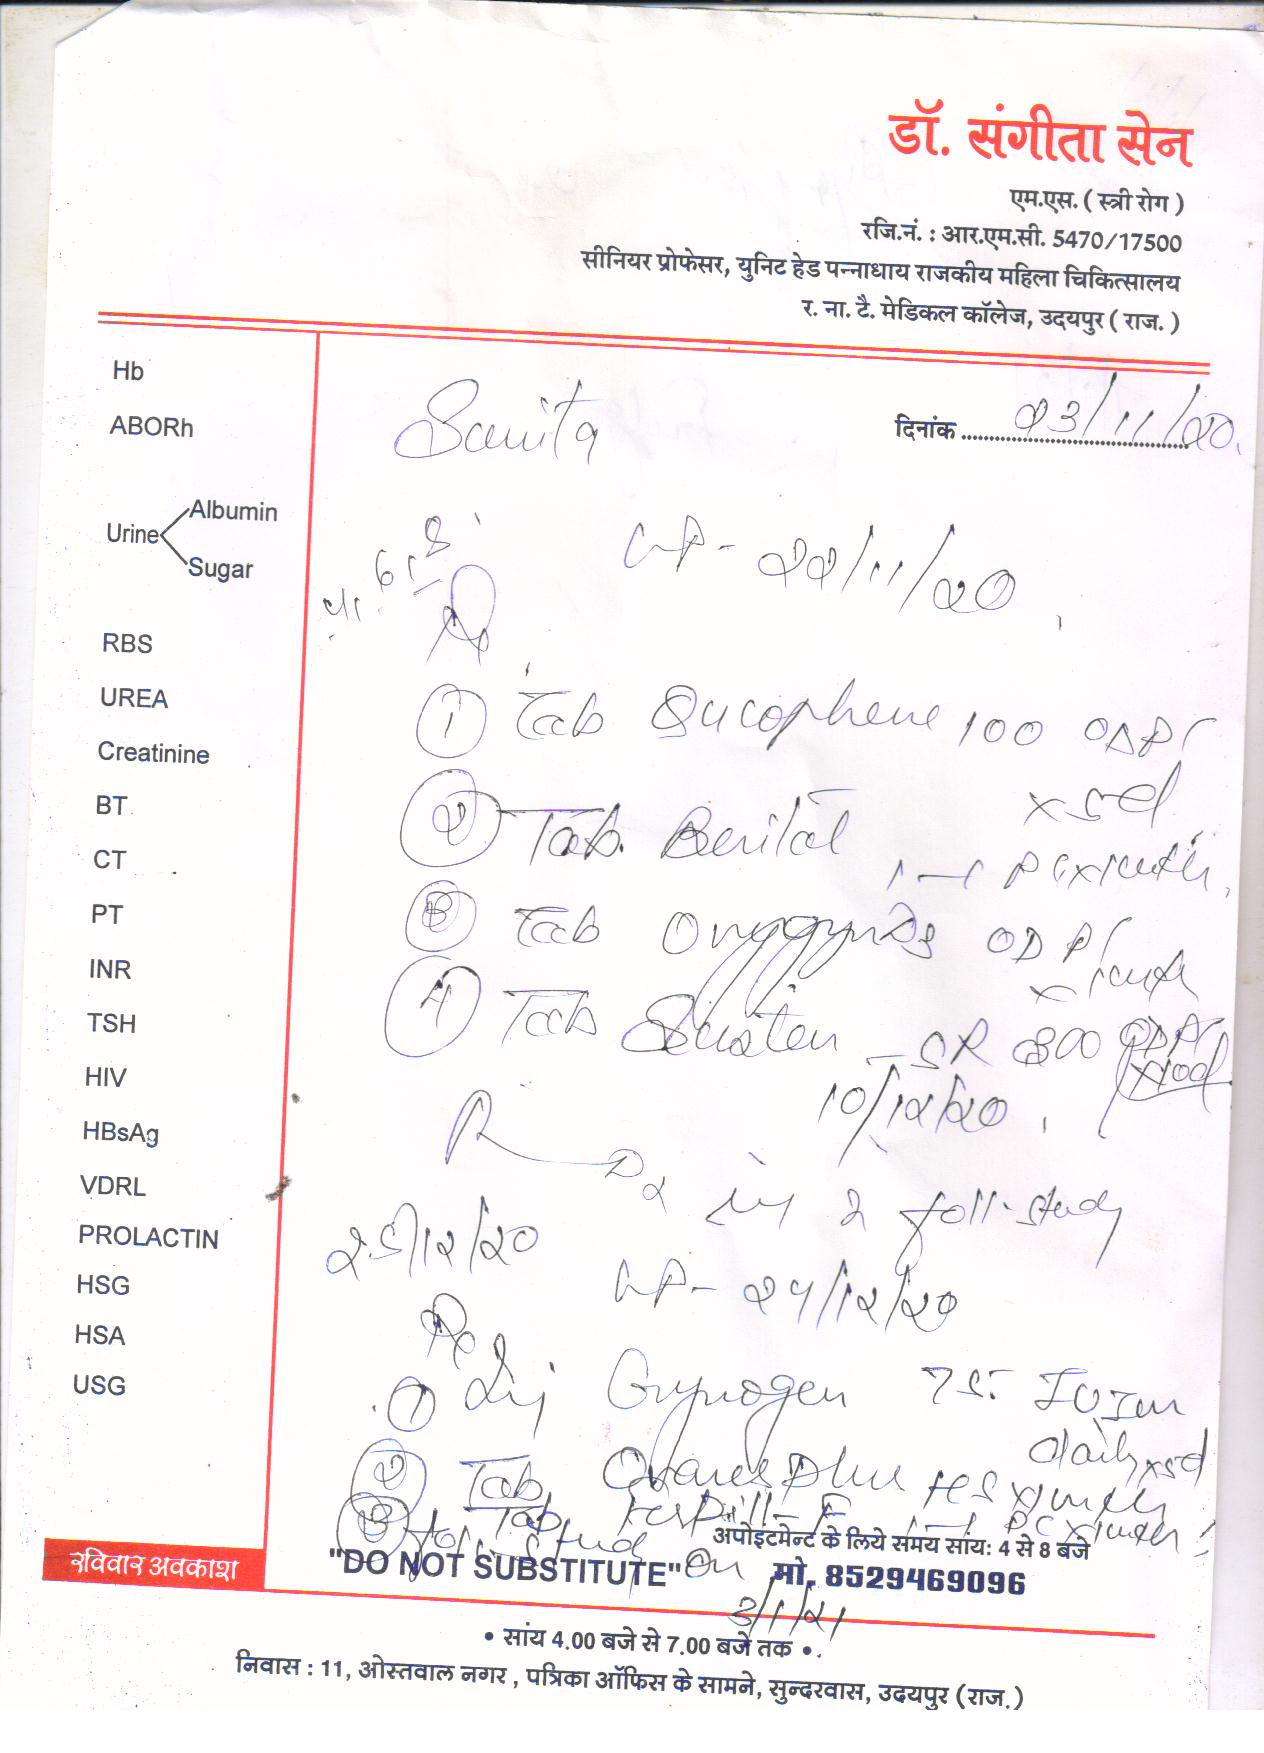 डॉ. संगीता सेन
एम.एस. ( स्त्री रोग )
रजि.नं. : आर.एम.सी. 5470/17500
सीनियर प्रोफेसर, युनिट हेड पन्नाधाय राजकीय महिला चिकित्सालय
र. ना. टै. मेडिकल कॉलेज, उदयपुर ( राज. )
Hb
ABORh
Urine
Albumin
Sugar
RBS
UREA
Creatinine
BT
CT
PT
INR
TSH
HIV
HBsAg
VDRL
PROLACTIN
HSG
HSA
USG
दिनांक 23/11/20
LP - 22/11/20
① Tab 100 OD PC
x 5d
② Tab.
1-1 PC x 1 month
③ Tab OD PC
x 1 month
④ Tab Susten SR 300 OD PC
x 10d
10/12/20
in 2 foll. study
25/12/20
LP - 24/12/20
① Inj Gynogen 75 IU Im
daily x 5d
② Tab Plus
③ foll. study on
3/1/21
अपोइटमेन्ट के लिये समय सांय: 4 से 8 बजे
रविवार अवकाश
"DO NOT SUBSTITUTE"
मो. 8529469096
• सांय 4.00 बजे से 7.00 बजे तक •
निवास : 11, ओस्तवाल नगर , पत्रिका ऑफिस के सामने, सुन्दरवास, उदयपुर (राज.)